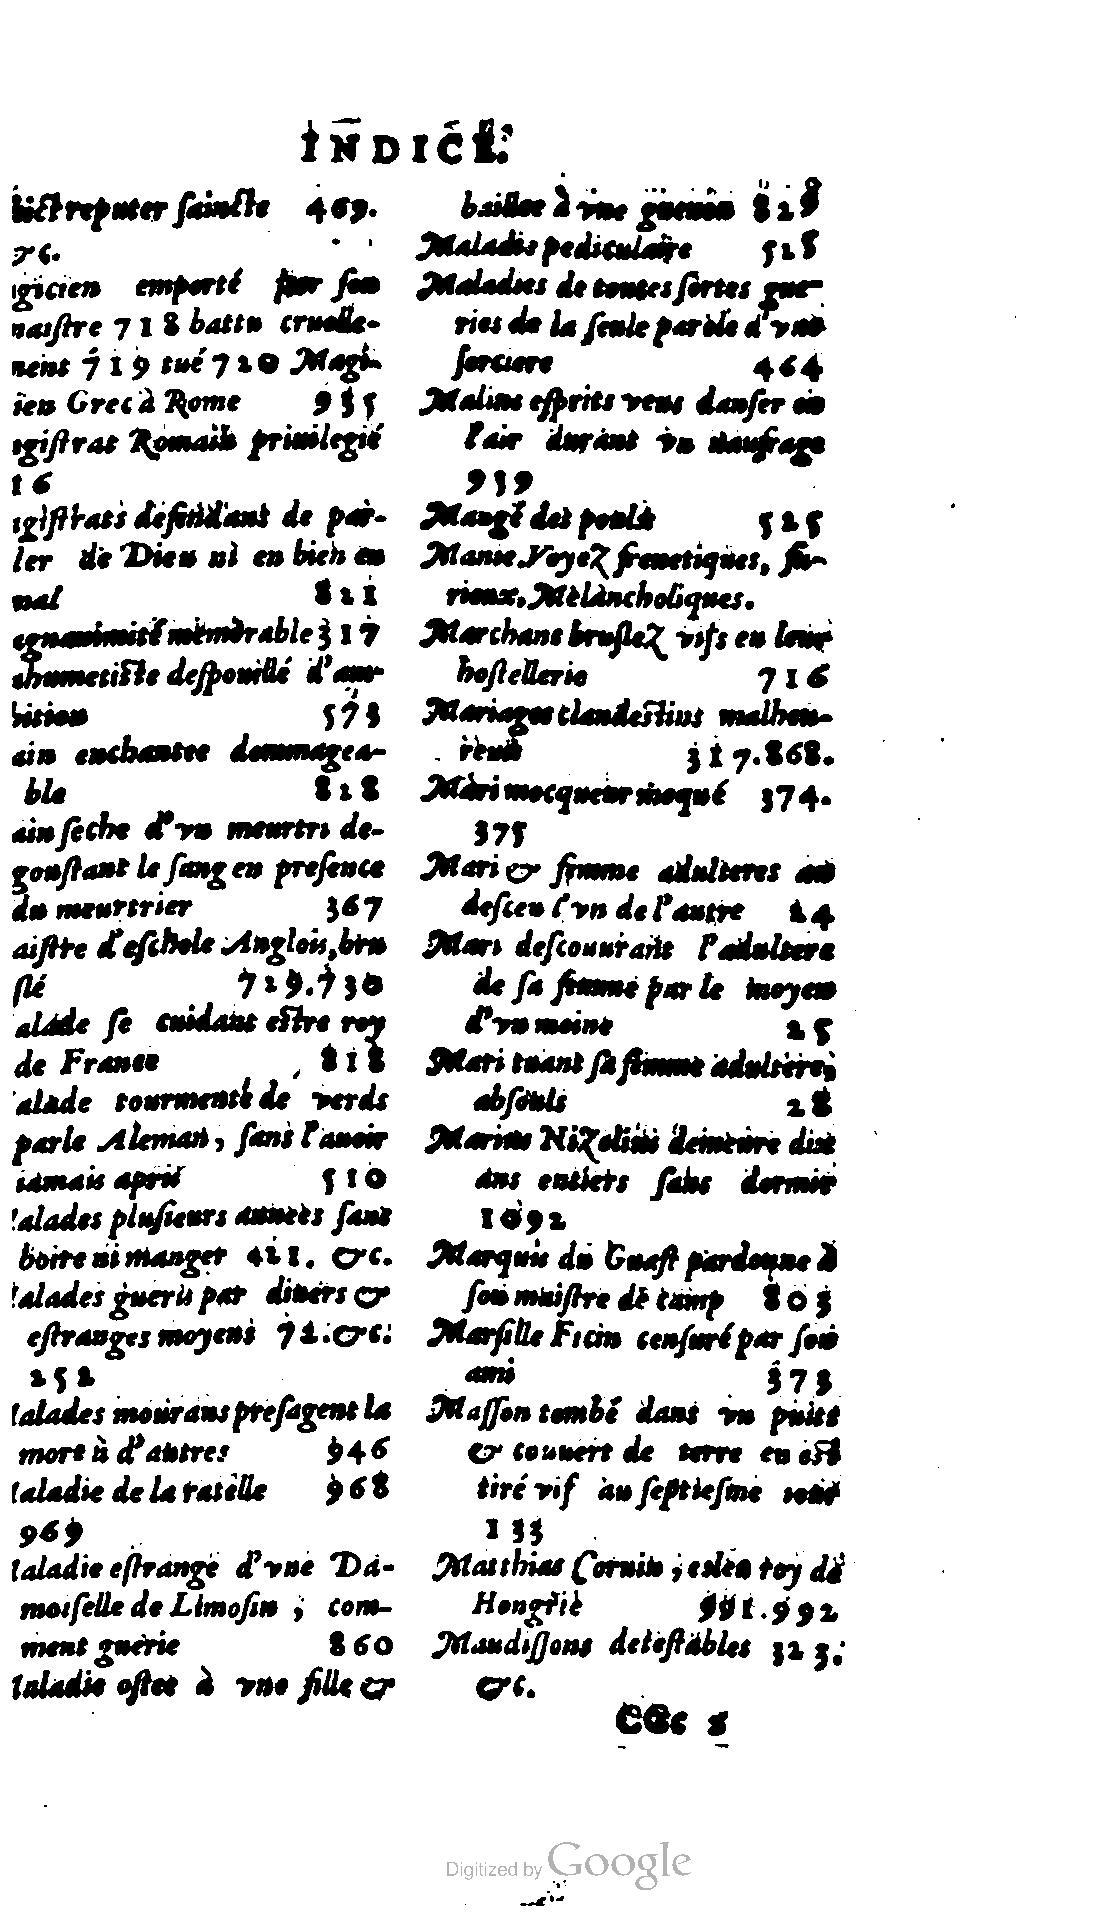 INDICE.
reputer saincte 469.
&c.
gicien emporté par son
maistre 718 battu cruelle-
ment 719 tué 720 Magi-
ien Grec à Rome 935
gistrat Romain priuilegié
16
gistrats defendans de par-
ler de Dieu ni en bien en
mal 821
gnanimité memorable 317
ahumetiste despouillé d'am-
bition 573
ain enchantee dommagea-
ble 828
ain seche d'vn meurtri de-
goustant le sang en presence
du meurtrier 367
aistre d'eschole Anglois, bru
slé 729.730
alade se cuidant estre roy
de France 818
alade tourmenté de verds
parle Aleman, sans l'auoir
iamais apris 510
alades plusieurs annees sans
boire ni manger 421. &c.
alades gueris par diuers &
estranges moyens 72. &c.
252
alades mourans presagent la
mort à d'autres 946
aladie de la ratelle 968
969
aladie estrange d'vne Da-
moiselle de Limosin, com-
ment guerie 860
aladie ostee à vne fille &
baillee à vne guenon 829
Maladie pediculaire 528
Maladies de toutes sortes gue-
ries de la seule parole d'vne
sorciere 464
Malins esprits veus danser en
l'air durant vn naufrage
939
Mangé des poulx 525
Manie. Voyez frenetiques, fu-
rieux, Melancholiques.
Marchans bruslez vifs en leur
hostellerie 716
Mariages clandestins malheu-
reux 317.868.
Mari mocqueur moqué 374.
375
Mari & femme adulteres au
desceu l'vn de l'autre 24
Mari descouurant l'adultere
de sa femme par le moyen
d'vn moine 25
Mari tuant sa femme adultere,
absouls 28
Marius Nizolius demeure dix
ans entiers sans dormir
1092
Marquis du Guast pardonne à
son maistre de camp 803
Marsille Ficin censuré par son
ami 373
Masson tombé dans vn puits
& couuert de terre en est
tiré vif au septiesme iour
133
Matthias Coruin, esleu roy de
Hongrie 991.992
Maudissons detestables 323.
&c.
CCc 2
Digitized by Google